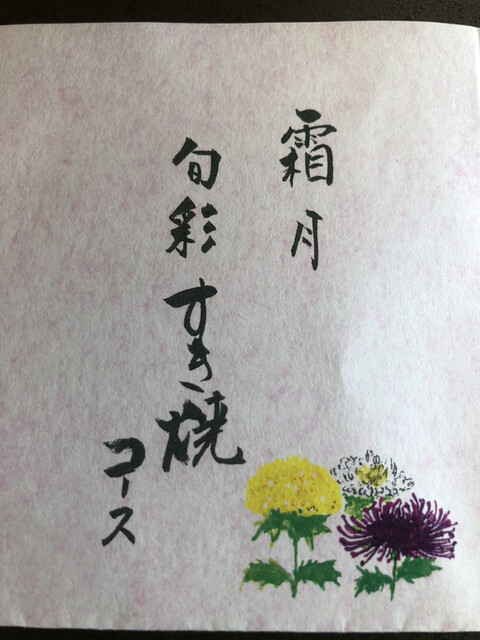 霜月
旬彩すき焼
コース